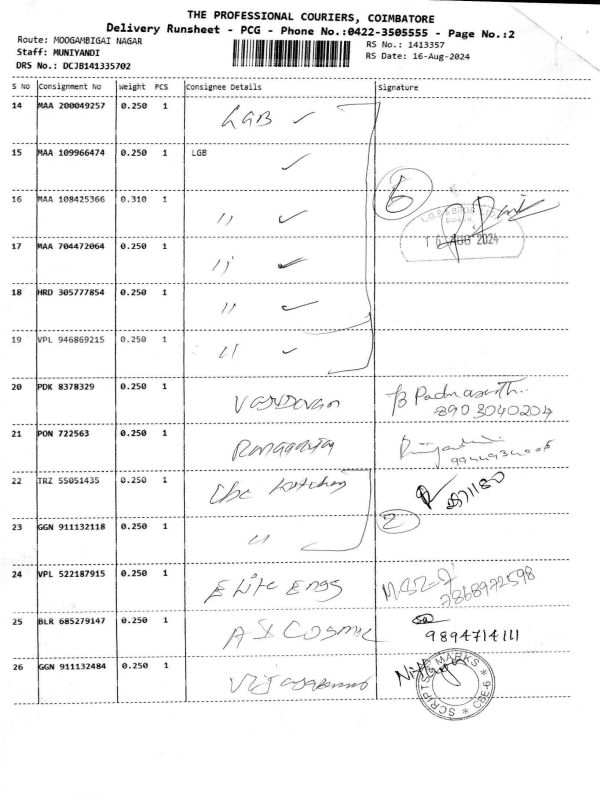 THE PROFESSIONAL COURIERS, COIMBATORE
Delivery Runsheet - PCG - Phone No.:0422-3505555 - Page No.:2
Route: MOOGAMBIGAI NAGAR
RS No.: 1413357
Staff: MUNIYANDI
RS Date: 16-Aug-2024
DRS No.: DCJB141335702
S No Consignment No Weight PCS Consignee Details Signature
14 MAA 200049257 0.250 1 LGB ✓
15 MAA 109966474 0.250 1 LGB ✓
16 MAA 108425366 0.310 1 " ✓ 6
16 AUG 2024
17 MAA 704472064 0.250 1 " ✓
18 HRD 305777854 0.250 1 " ✓
19 VPL 946869215 0.250 1 " ✓
20 PDK 8378329 0.250 1 Vasudevan
8903040204
21 PON 722563 0.250 1
22 TRZ 55051435 0.250 1
23 GGN 911132118 0.250 1 " 2
24 VPL 522187915 0.250 1 Elite Engs
7868972598
25 BLR 685279147 0.250 1 Cosmic
9894714111
26 GGN 911132484 0.250 1
SCRIPTS & MARKS * CBE-6 *